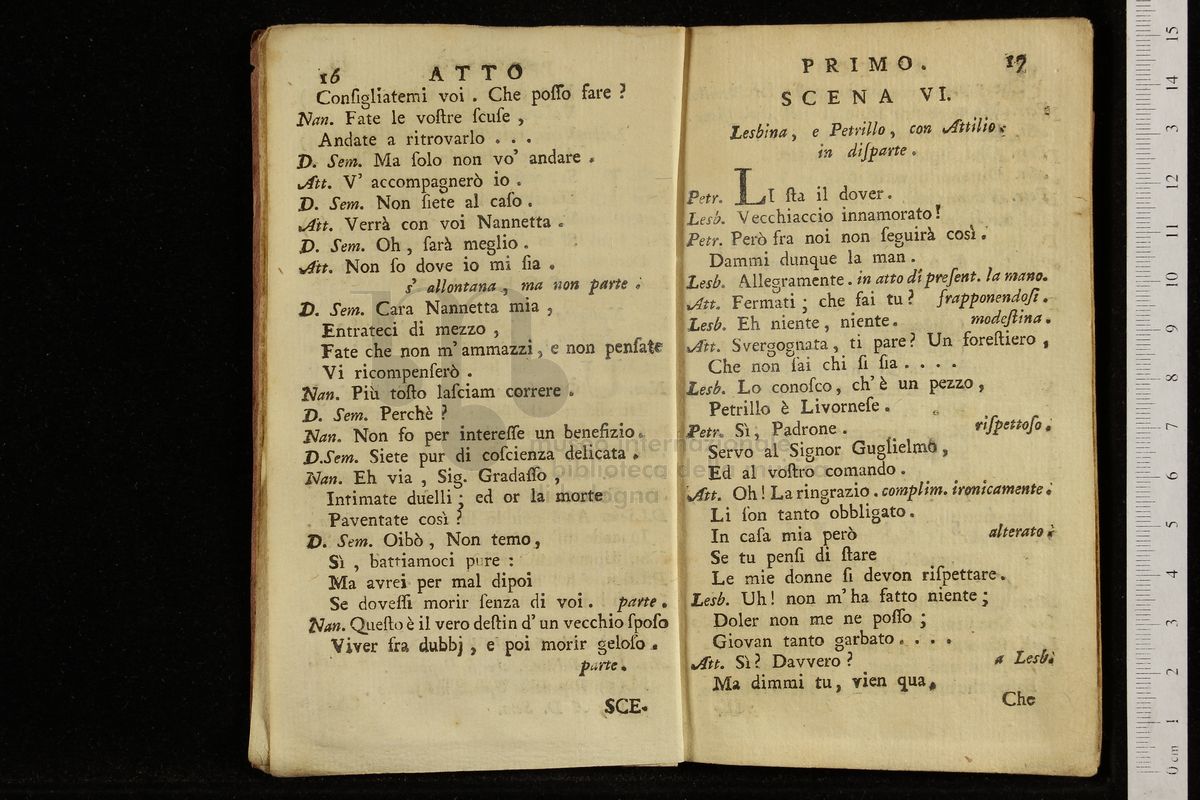 16 ATTO
Conſigliatemi voi . Che poſſo fare ?
Nan. Fate le voſtre ſcuſe ,
Andate a ritrovarlo . . .
D. Sem. Ma ſolo non vo' andare .
Att. V' accompagnerò io .
D. Sem. Non ſiete al caſo .
Att. Verrà con voi Nannetta .
D. Sem. Oh , ſarà meglio .
Att. Non ſo dove io mi ſia .
s' allontana , ma non parte .
D. Sem. Cara Nannetta mia ,
Entrateci di mezzo ,
Fate che non m' ammazzi , e non penſate
Vi ricompenſerò .
Nan. Più toſto laſciam correre .
D. Sem. Perchè ?
Nan. Non fo per intereſſe un benefizio .
D.Sem. Siete pur di coſcienza delicata .
Nan. Eh via , Sig. Gradaſſo ,
Intimate duelli ; ed or la morte
Paventate così ?
D. Sem. Oibò , Non temo ,
Sì , battiamoci pure :
Ma avrei per mal dipoi
Se doveſſi morir ſenza di voi . parte .
Nan. Queſto è il vero deſtin d' un vecchio ſpoſo
Viver fra dubbj , e poi morir geloſo .
parte .
SCE-
PRIMO . 17
SCENA VI.
Lesbina , e Petrillo , con Attilio
in diſparte .
Petr. LI ſta il dover .
Lesb. Vecchiaccio innamorato !
Petr. Però fra noi non ſeguirà così .
Dammi dunque la man .
Lesb. Allegramente . in atto di preſent. la mano.
Att. Fermati ; che fai tu ? frapponendoſi .
Lesb. Eh niente , niente . modeſtina .
Att. Svergognata , ti pare ? Un foreſtiero ,
Che non ſai chi ſi ſia . . . .
Lesb. Lo conoſco , ch' è un pezzo ,
Petrillo è Livorneſe .
Petr. Sì , Padrone . riſpettoſo .
Servo al Signor Guglielmo ,
Ed al voſtro comando .
Att. Oh ! La ringrazio . complim. ironicamente .
Li ſon tanto obbligato .
In caſa mia però alterato
Se tu penſi di ſtare
Le mie donne ſi devon riſpettare .
Lesb. Uh ! non m' ha fatto niente ;
Doler non me ne poſſo ;
Giovan tanto garbato . . . .
Att. Sì ? Davvero ? a Lesb.
Ma dimmi tu , vien qua ,
Che
museo internazionale
biblioteca della musica
di bologna